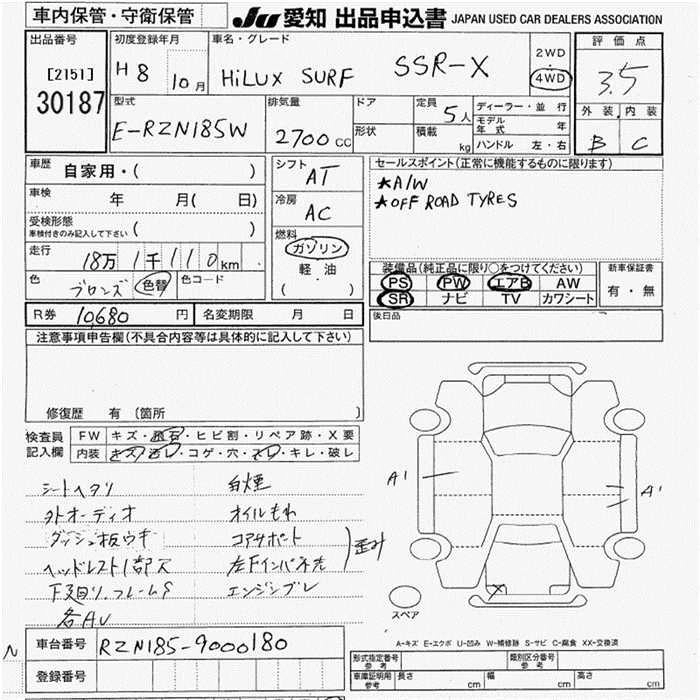 車内保管・守衛保管
JU 愛知 出品申込書 JAPAN USED CAR DEALERS ASSOCIATION
出品番号
[2151]
30187
初度登録年月
H8 10月
車名・グレード
HiLUX SURF SSR-X
2WD
4WD
評価点
3.5
外装 内装
B C
型式
E-RZN185W
排気量
2700 CC
ドア
形状
定員
5人
積載
kg
ディーラー・並行
モデル年式 年
ハンドル 左・右
車歴 自家用・( )
車検 年 月( 日)
受検形態
車検付きのみ記入して下さい ( )
走行 18万1千110km
色 ブロンズ 色替 色コード
シフト
AT
冷房
AC
燃料
ガソリン
軽油
( )
セールスポイント(正常に機能するものに限ります)
★A/W
★OFF ROAD TYRES
装備品(純正品に限り○をつけてください)
PS PW エアB AW
SR ナビ TV カワシート
新車保証書
有・無
R券 10,680 円 名変期限 月 日
後日品
注意事項申告欄(不具合内容等は具体的に記入して下さい)
修復歴 有 〔箇所 〕
検査員記入欄
FW キズ・飛石・ヒビ割・リペア跡・X要
内装 キズ・汚レ・コゲ・穴・スレ・キレ・破レ
シートヘタリ 白煙
外オーディオ オイルもれ
ダッシュ板ウキ コアサポート
ヘッドレスト1部欠 左Fインパネ先 歪み
下廻り、フレームS エンジンブレ
各AU
A1
A1
X
スペア
A-キズ E-エクボ U-凹み W-補修跡 S-サビ C-腐食 XX-交換済
N
車台番号 RZN185-9000180
登録番号
形式指定番号 参考
類別区分番号 参考
車庫証明用 参考 長さ cm 幅 cm 高さ cm